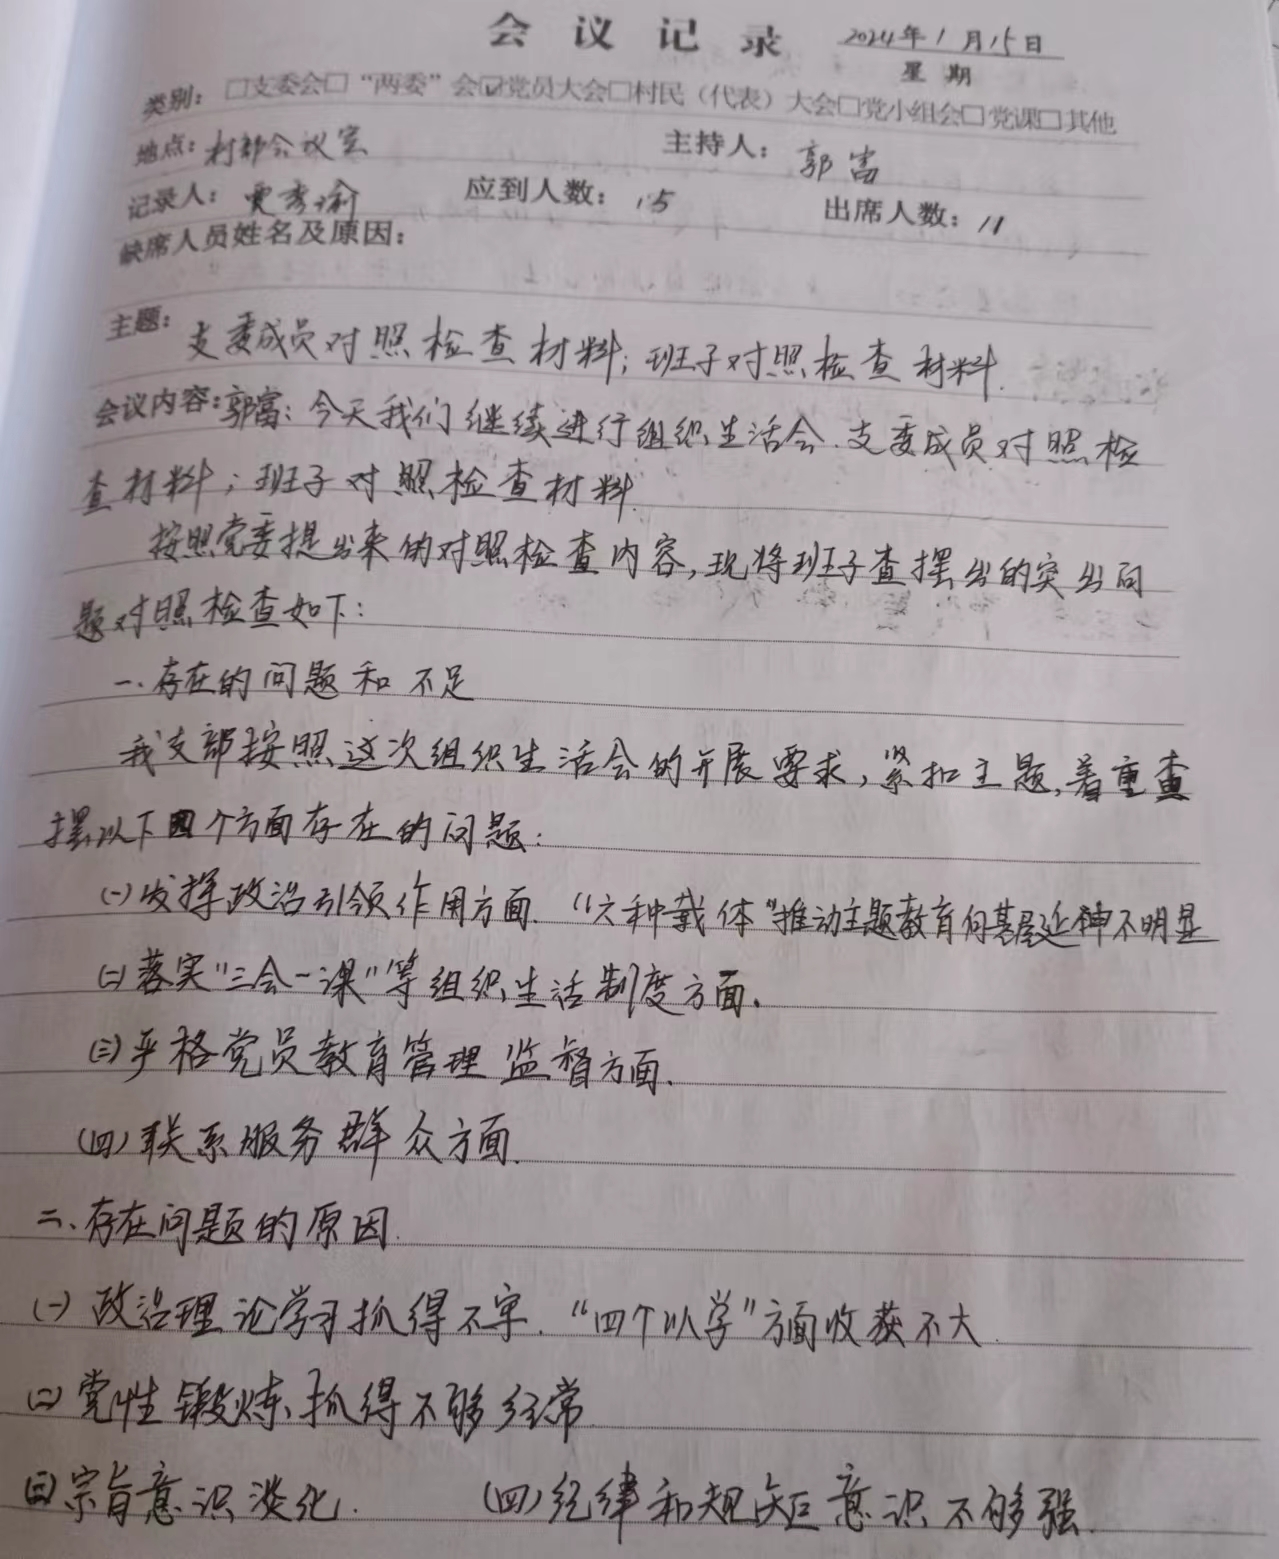 会议记录 2024年1月15日
星期
类别：□支委会□“两委”会☑党员大会□村民（代表）大会□党小组会□党课□其他
地点：村部会议室 主持人：郭富
记录人：贾秀瑜 应到人数：15 出席人数：11
缺席人员姓名及原因：
主题：支委成员对照检查材料；班子对照检查材料.
会议内容：郭富：今天我们继续进行组织生活会.支委成员对照检
查材料；班子对照检查材料.
按照党委提出来的对照检查内容，现将班子查摆出的突出问
题对照检查如下：
一.存在的问题和不足
我支部按照这次组织生活会的开展要求，紧扣主题，着重查
摆以下四个方面存在的问题：
(一)发挥政治引领作用方面.“六种载体”推动主题教育向基层延神不明显
(二)落实“三会一课”等组织生活制度方面.
(三)严格党员教育管理监督方面.
(四)联系服务群众方面.
二、存在问题的原因.
(一)政治理论学习抓得不牢.“四个以学”方面收获不大.
(二)党性锻炼抓得不够经常.
(三)宗旨意识淡化. (四)纪律和规矩意识不够强.